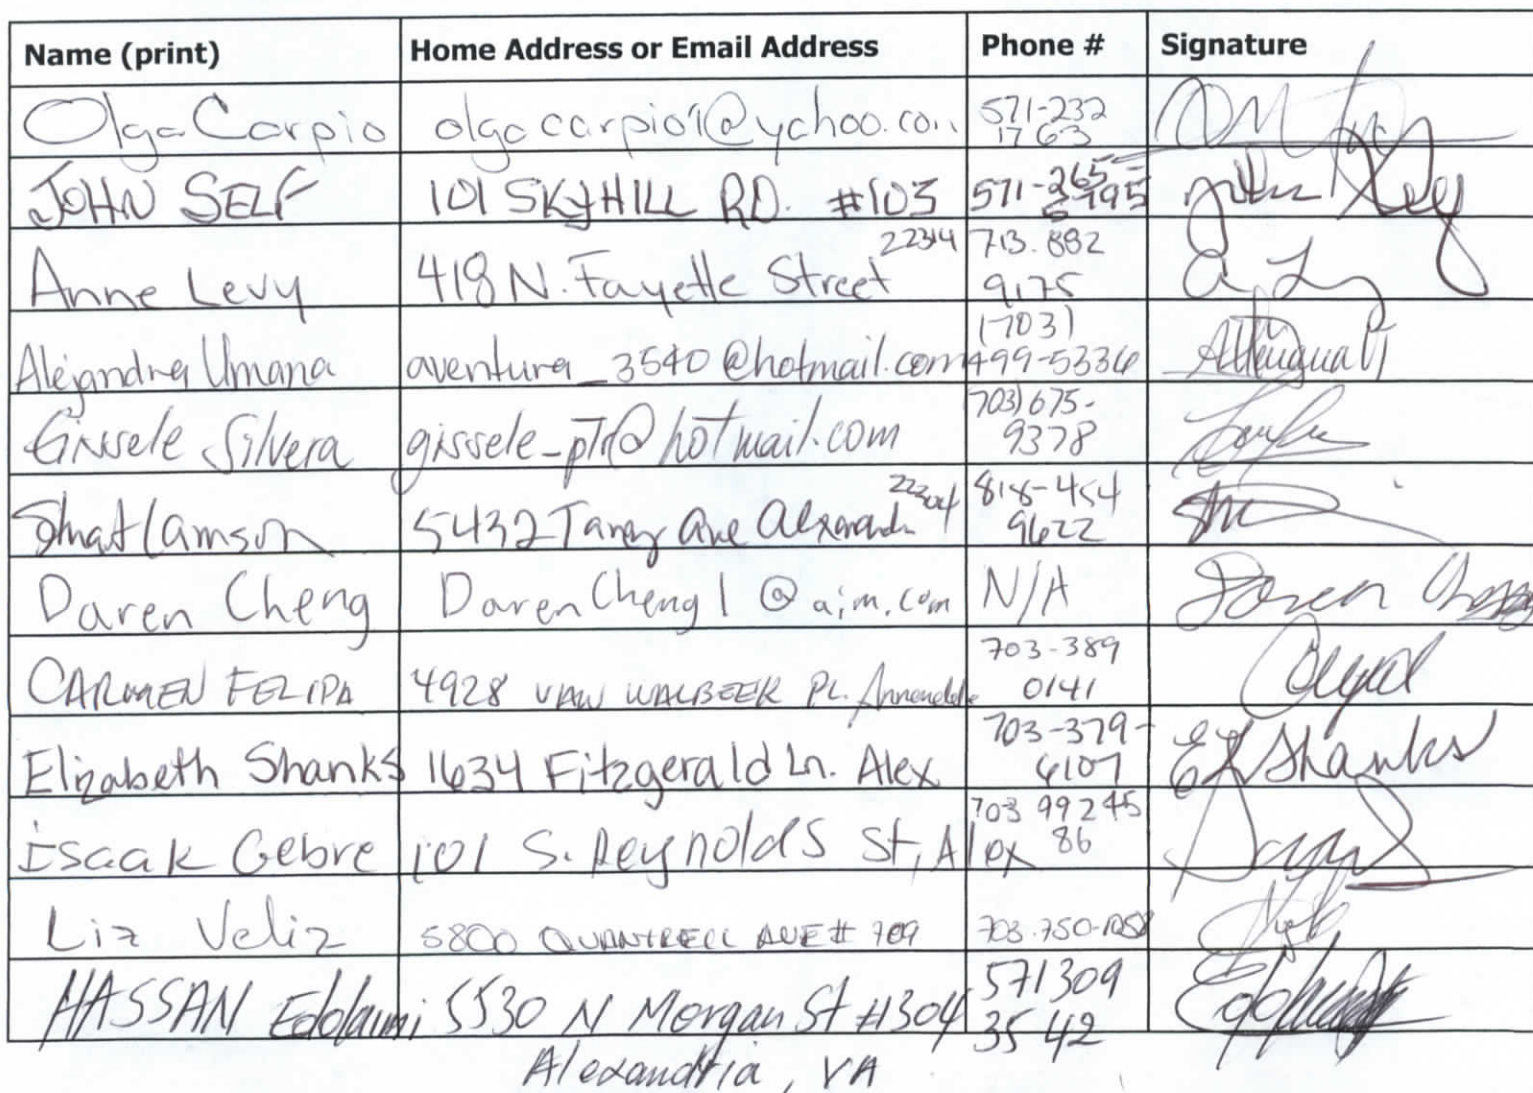 Name (print) Home Address or Email Address Phone # Signature
Olga Carpio olgacarpio1@yahoo.com 571-232
1763
JOHN SELF 101 SKYHILL RD. #103 571-265-
5795
Anne Levy 418 N. Fayette Street 22314 713.882
9175
Alejandra Umana aventura_3540@hotmail.com (703)
499-5336
Gissele Silvera @hotmail.com 703) 675-
9378
5432 Taney Ave Alexandria 22304 818-454
9622
Daren Cheng DarenCheng1@aim.com N/A Daren Cheng
CARMEN FELIPA 4928 VAN WALBEEK PL. Annandale 703-389
0141
Elizabeth Shanks 1634 Fitzgerald Ln. Alex 703-379-
6107 Shanks
Isaak Gebre 101 S. Reynolds St, Alex 703 99245
86
Liz Veliz 5800 QUANTRELL AVE # 709 703-750-1058
HASSAN Eddaimi 5530 N Morgan St #304 571309
3542
Alexandria, VA